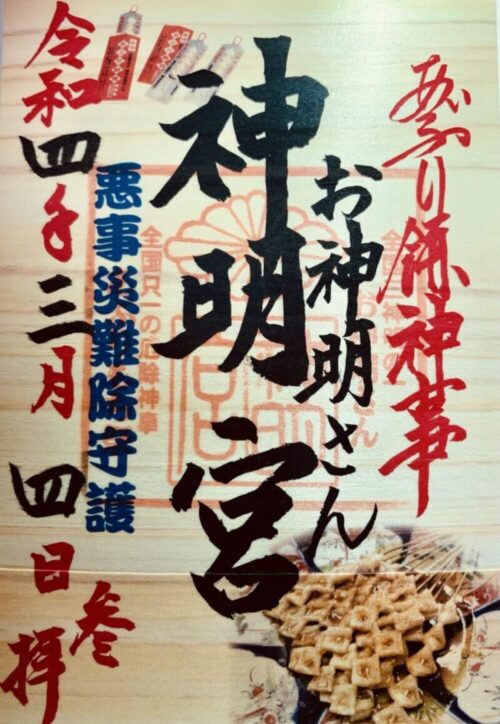 あぶり餅神事
お神明さん
神明宮
全国只一の厄除神事
悪事災難除守護
令和四年三月四日
参拝